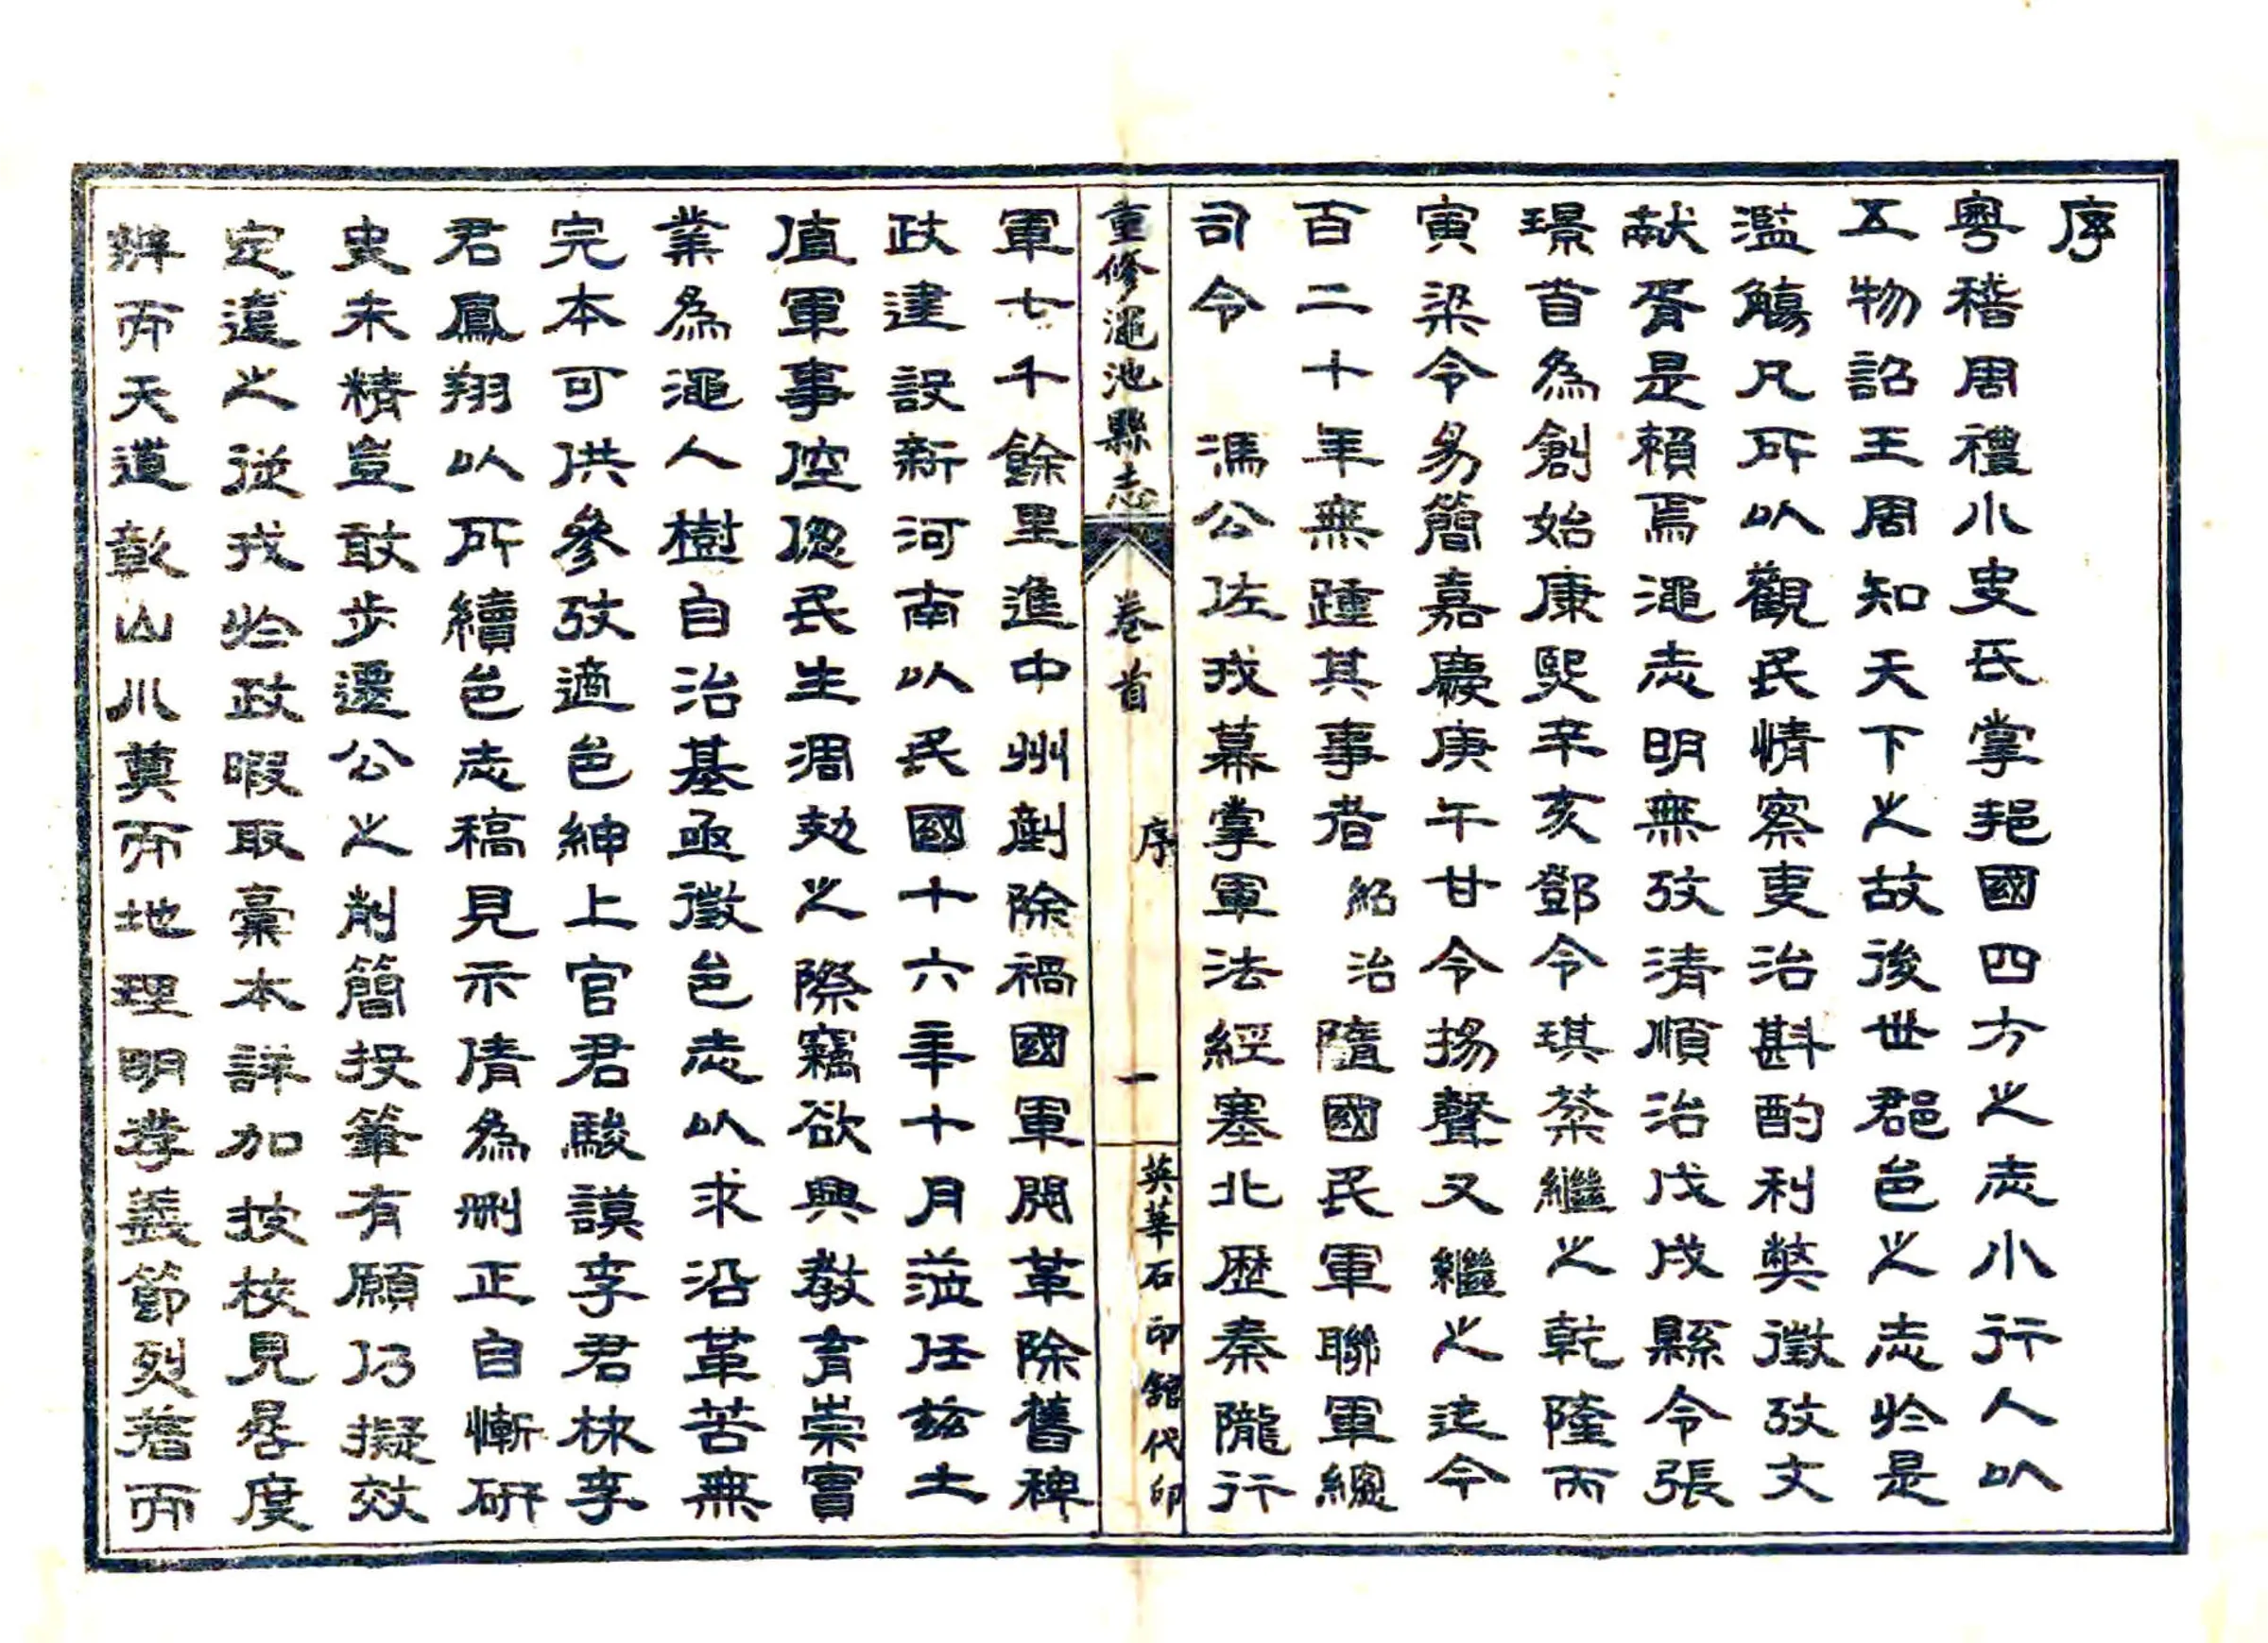 序
粤稽周禮小史氏掌邦國四方之志小行人以
五物詔王周知天下之故後世郡邑之志於是
濫觴凡所以觀民情察吏治斟酌利弊徵攷文
献胥是賴焉澠志明無攷清順治戊戌縣令張
璟首為創始康熙辛亥鄧令琪棻繼之乾隆丙
寅梁令易簡嘉慶庚午甘令揚聲又繼之迄今
百二十年無踵其事者紹治隨國民軍聯軍總
司令馮公佐戎幕掌軍法經塞北歷秦隴行
重修澠池縣志
卷首
序
一
英華石印館代印
軍七千餘里進中州剷除禍國軍閥革除舊稗
政建設新河南以民國十六年十月蒞任茲土
值軍事倥傯民生凋劾之際竊欲興教育崇實
業為澠人樹自治基亟徵邑志以求沿革苦無
完本可供參攷適邑紳上官君駿謨李君林李
君鳳翔以所續邑志稿見示倩為刪正自慚研
史未精豈敢步遷公之削簡投筆有願乃擬效
定遠之從戎於政暇取稾本詳加披校見晷度
辨而天道彰山川奠而地理明孝義節烈著而